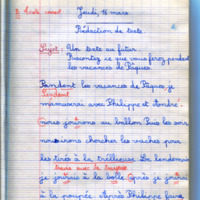 Jeudi, 16 mars
Rédaction de texte.
Sujet: Un texte au futur
Racontez ce que vous ferez pendant
les vacances de Pâques.
Pendant les vacances de Pâques, je
Pendant
m'amuserai avec Philippe et André.
Nous jouerons au ballon. Puis les soirs
nous irons chercher les vaches pour
les tirés à la trilleuse. Le lendemain
je jouerais à la balle. Après je jouerai
à la poupée. Après Philippe fera